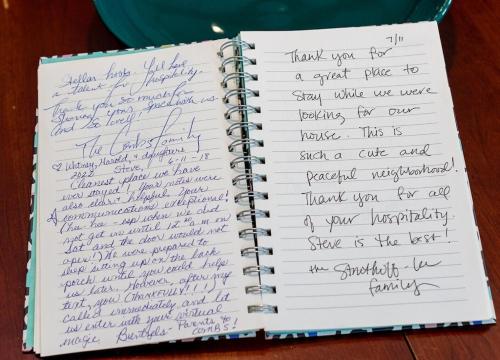 Stellar hosts. Y'all have
a talent for hospitality.
Thank you so much for
sharing your space with us.
And so lovely!
The Combs Family
♡ Whitney, Harold, & daughters
2022
Steve, 6-11-18
Cleanest place we have
ever stayed! Your notes were
also clear & helpful. Your
communications exceptional!
One hic-sup when we did
not get in until 12:00 a.m. on
Sat and the door would not
open! We were prepared to
sleep sitting up on the back
porch until you could help
us later. However, after my
text, you (THANKFULLY!!!)
called immediately and let
us enter with your virtual
magic. Parents to
Combs!
7/11
Thank you for
a great place to
stay while we were
looking for our
house. This is
such a cute and
peaceful neighborhood!
Thank you for all
of your hospitality.
Steve is the best!
the Strothoff-Lee
family